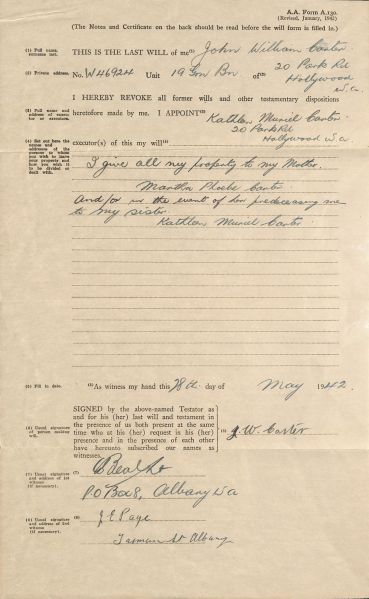 A.A. Form A.130.
(Revised, January, 1942)
(The Notes and Certificate on the back should be read before the will form is filled in.)
(1) Full name, surname last.
THIS IS THE LAST WILL of me(1) John William Carter
(2) Private address.
No. W46924 Unit 19 Gn Bn of(2) 20 Park Rd
Hollywood
W.a.
I HEREBY REVOKE all former wills and other testamentary dispositions
(3) Full name and address of executor or executors.
heretofore made by me. I APPOINT(3) Kathlen Muriel Carter
20 Park Rd
Hollywood W.a
(4) Set out here the names and addresses of the persons to whom you wish to leave your property and how you wish it to be divided or dealt with.
executor(s) of this my will(4)
I give all my property to my Mother.
Martha Phoebe Carter.
And/or in the event of her predeceasing me
to my sister
Kathlen Muriel Carter.
(5) Fill in date.
(5)As witness my hand this 28th day of May 1942.
SIGNED by the above-named Testator as
and for his (her) last will and testament in
the presence of us both present at the same
time who at his (her) request is his (her)
presence and in the presence of each other
have hereunto subscribed our names as
witnesses.
(6) Usual signature of person making will.
(6) J.W. Carter
(7) Usual signature and address of 1st witness (if necessary).
(7)
P.O Box 8, Albany W a
(8) Usual signature and address of 2nd witness (if necessary).
(8) J E Page
Tasman St Albany